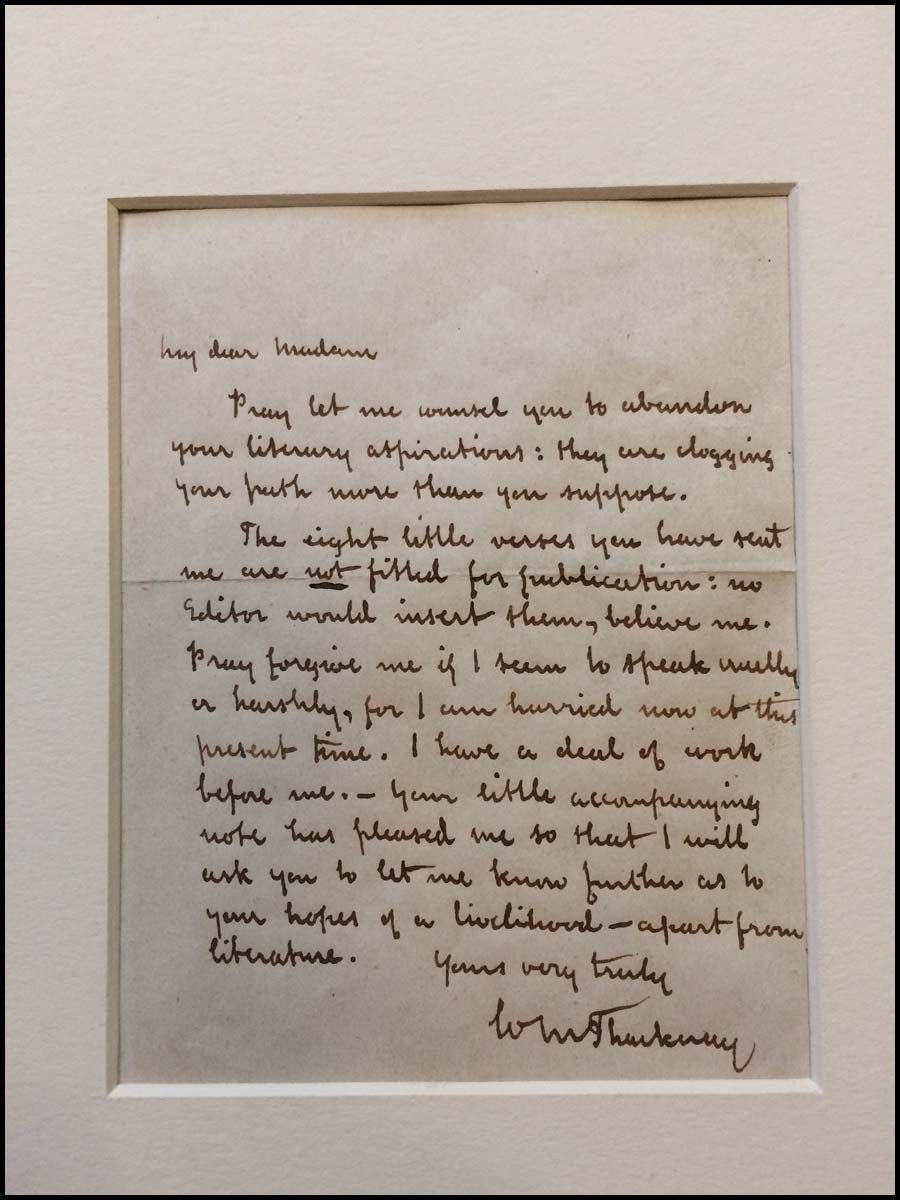 My dear Madam
Pray let me counsel you to abandon
your literary aspirations: they are clogging
your path more than you suppose.
The eight little verses you have sent
me are not fitted for publication: no
Editor would insert them, believe me.
Pray forgive me if I seem to speak cruelly
or harshly, for I am hurried now at this
present time. I have a deal of work
before me. — Your little accompanying
note has pleased me so that I will
ask you to let me know further as to
your hopes of a livelihood — apart from
literature.
Yours very truly
W M Thackeray